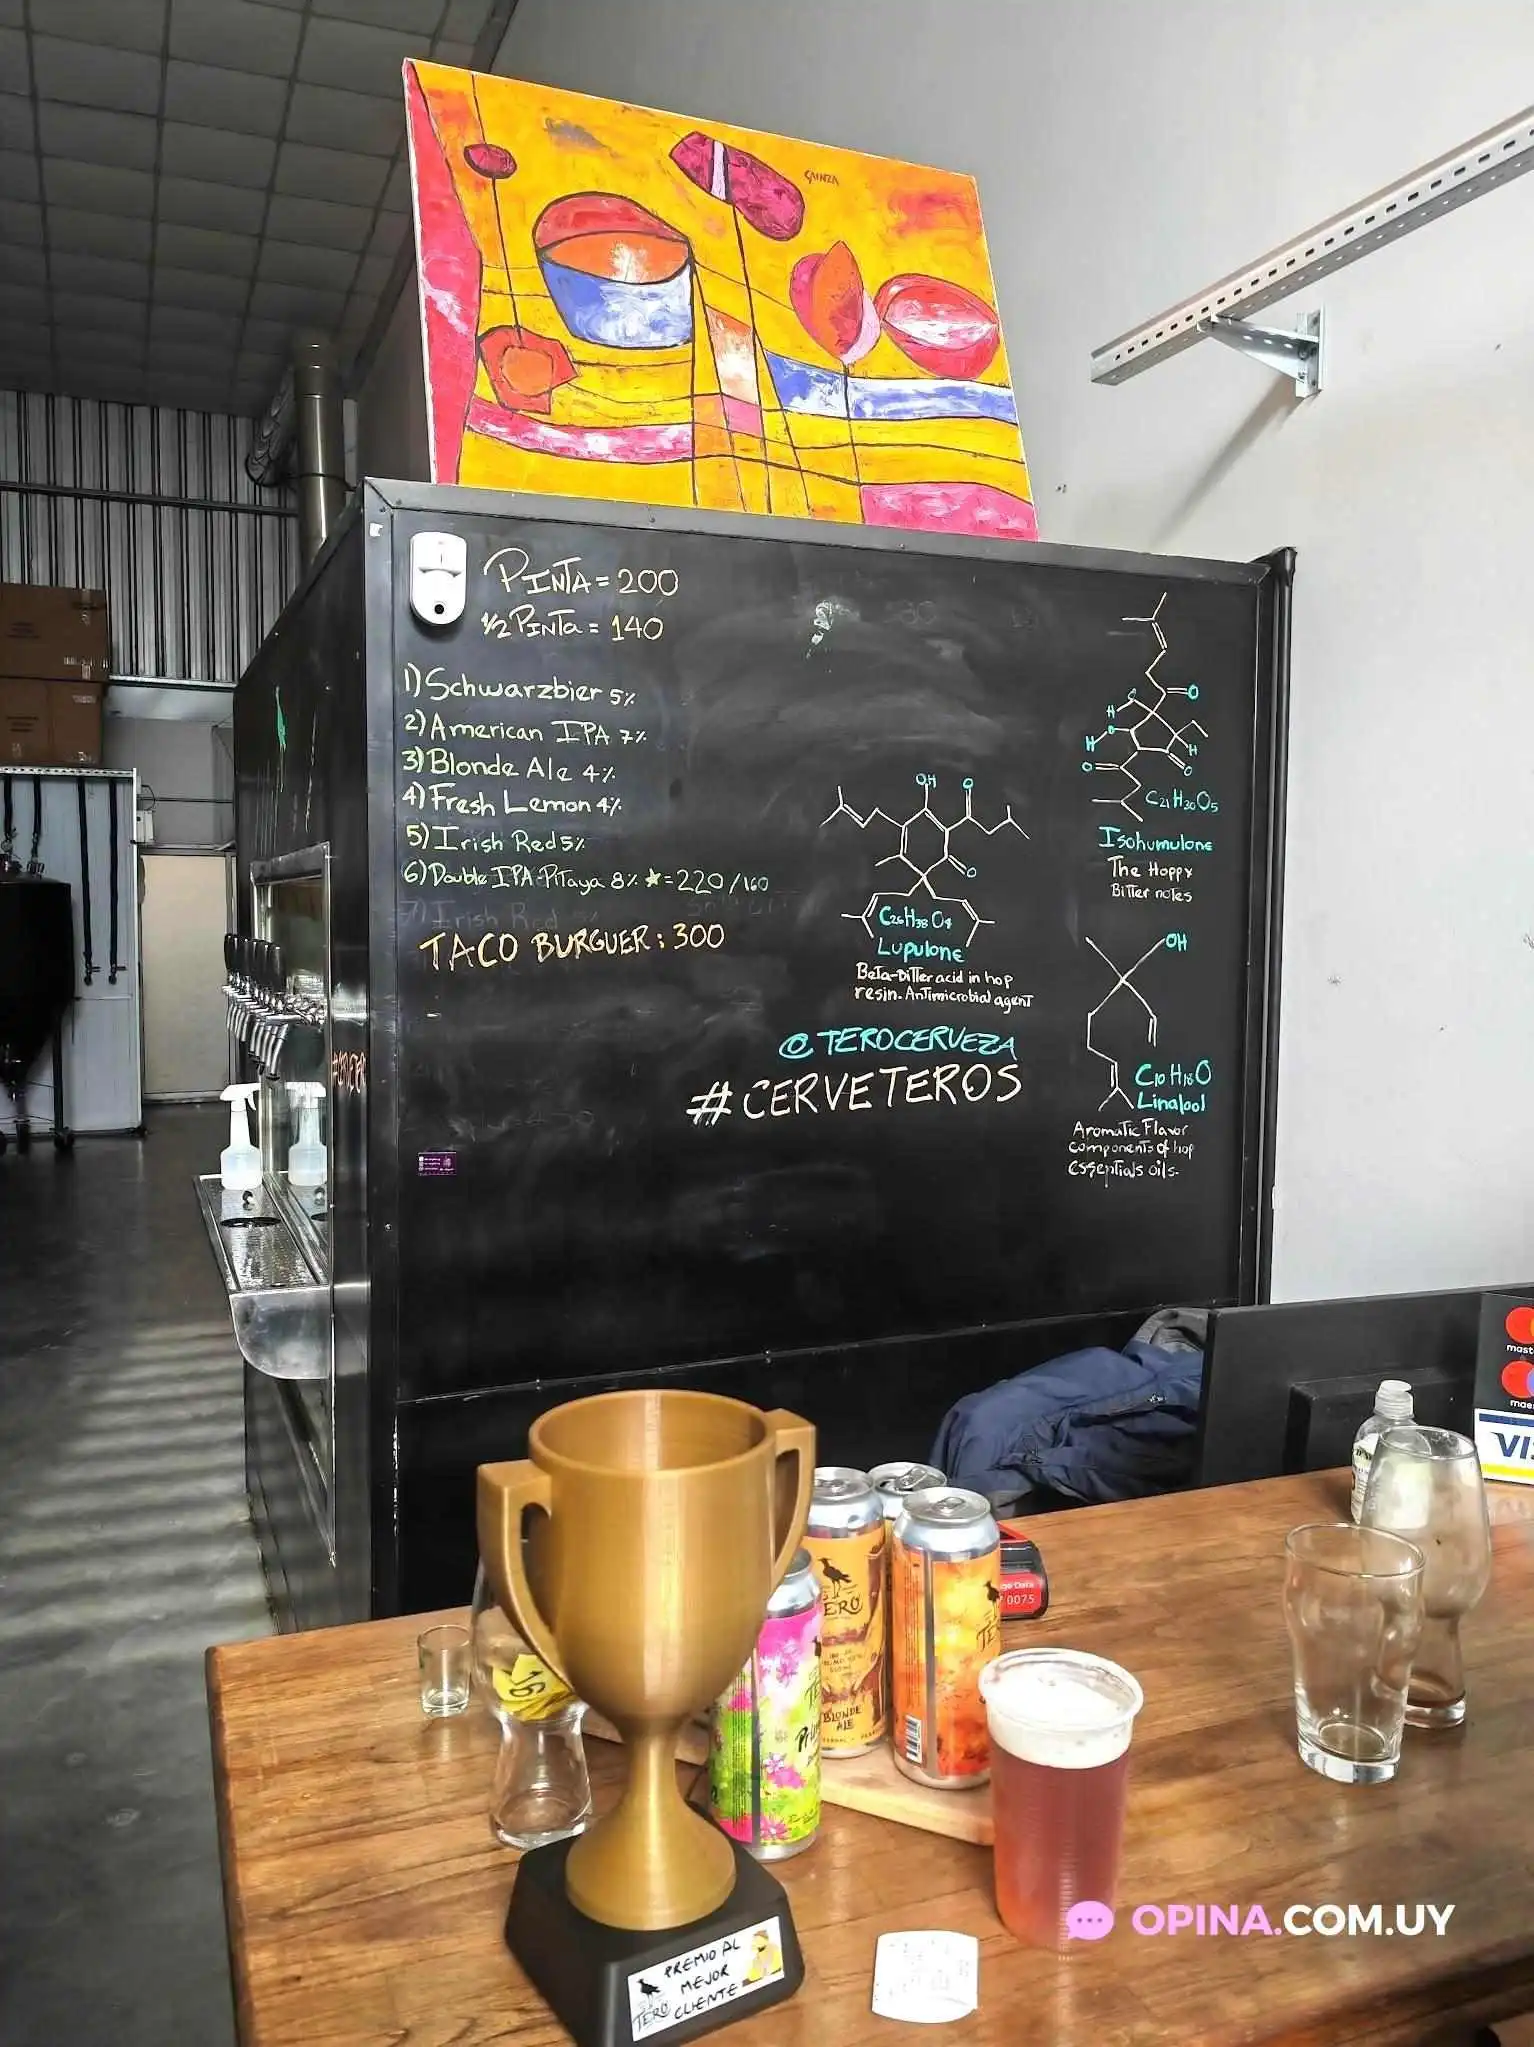 GAINZA
PINTA = 200
1/2 PINTA = 140
1) Schwarzbier 5%
2) American IPA 7%
3) Blonde Ale 4%
4) Fresh Lemon 4%
5) Irish Red 5%
6) Double IPA Pitaya 8% ★ = 220 / 160
7) Irish Red 5%
TACO BURGUER: 300
OH
O
O
C26H38O4
Lupulone
Beta-Bitter acid in hop
resin. Antimicrobial agent
@TEROCERVEZA
#CERVETEROS
O
H
H
H
O
O
C21H30O5
Isohumulone
The Hoppy
Bitter notes
OH
C10H18O
Linalool
Aromatic Flavor
components of hop
essentials oils.
VIS
0075
TERO
BLONDE
ALE
16
PREMIO AL
MEJOR
CLIENTE
TERO
OPINA.COM.UY